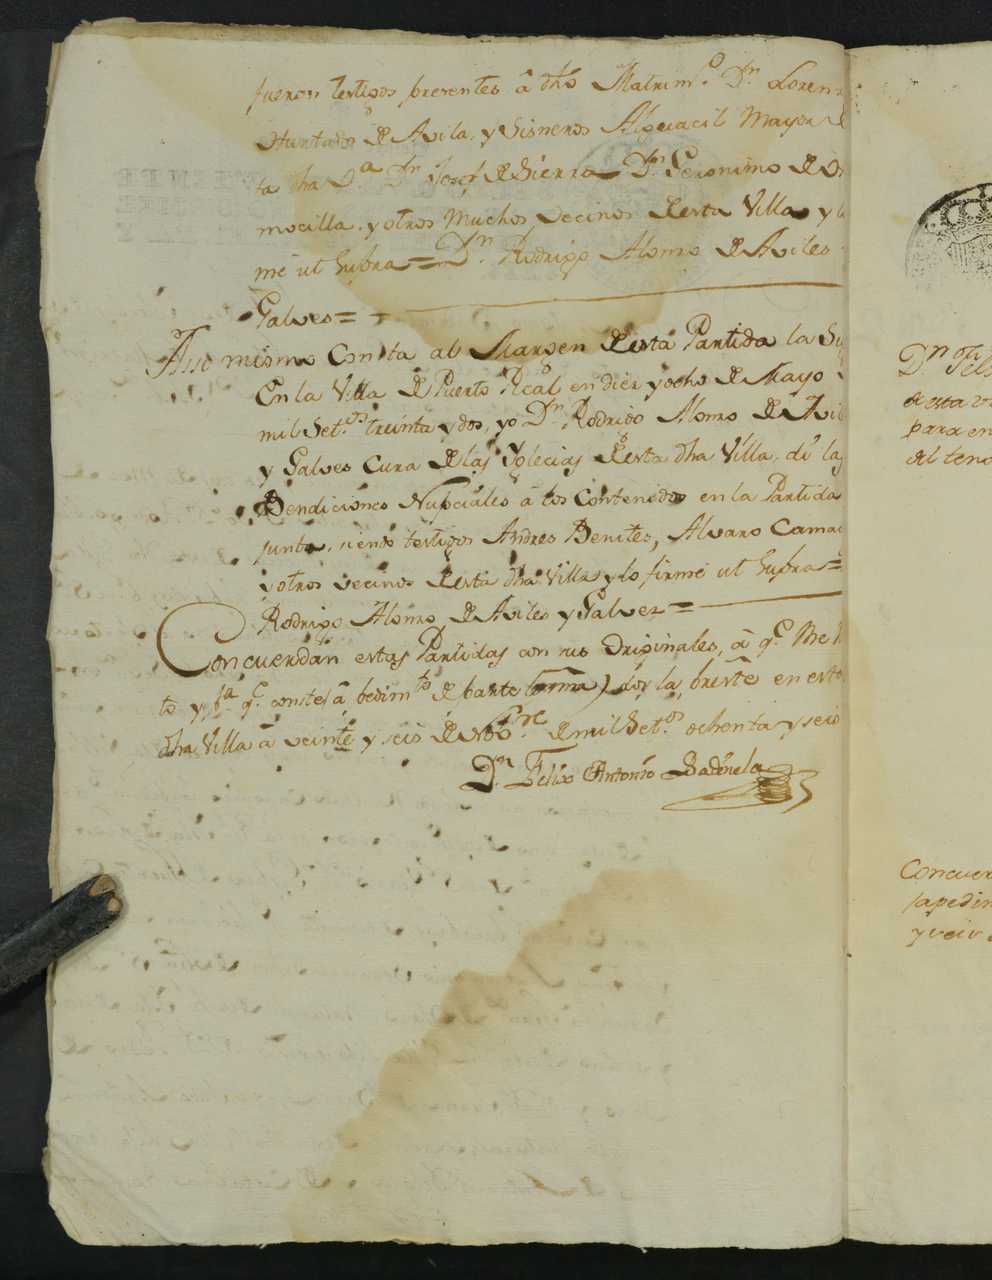 fueron testigos presentes â dho Matrim.º Dn. Loren
Hurtado de Avila, y Sisneros Alguacil Mayor
ta dha Va. Dn. Josef de Sierra Dn. Geronimo de
mocilla, y otros muchos vecinos desta Villa y lo
mé ut Supra = Dn. Rodrigo Alonso de Aviles
Galves =
Assi mismo Consta al Margen desta Partida la
En la Villa de Puerto Real en diez y ocho de Mayo
mil Set.os treinta y dos, yo Dn. Rodrigo Alonso de Avil
y Galves Cura de las Yglecias desta dha Villa, di las
Bendiciones Nupciales â los Contenidos en la Partida
junta, siendo testigos Andres Benites, Alvaro Camac
y otros vecinos desta dha Villa y lo firmé ut Supra =
Rodrigo Alonso de Aviles y Galvez =
Concuerdan estas Partidas con sus Originales, â q.e Me
to y pa. q.e conste â pedimto de parte lexitima doy la preste en esta
dha Villa â veinte y seis de Nobre de mil Set.os ochenta y seis
Dn. Felix Antonio
Dn.
desta
para en
del teno
Concuer
a pedim
y seis